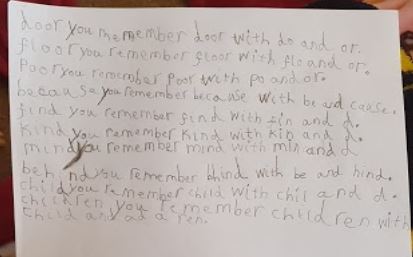 door you memember door with do and or.
floor you remember floor with flo and or.
poor you remember poor with po and or.
because you remember because with be and cause.
find you remember find with fin and d.
kind you remember kind with kin and d.
mind you remember mind with min and d
behind you remember bhind with be and hind.
child you remember child with chil and d.
children you remember children with
child and ad a ren.